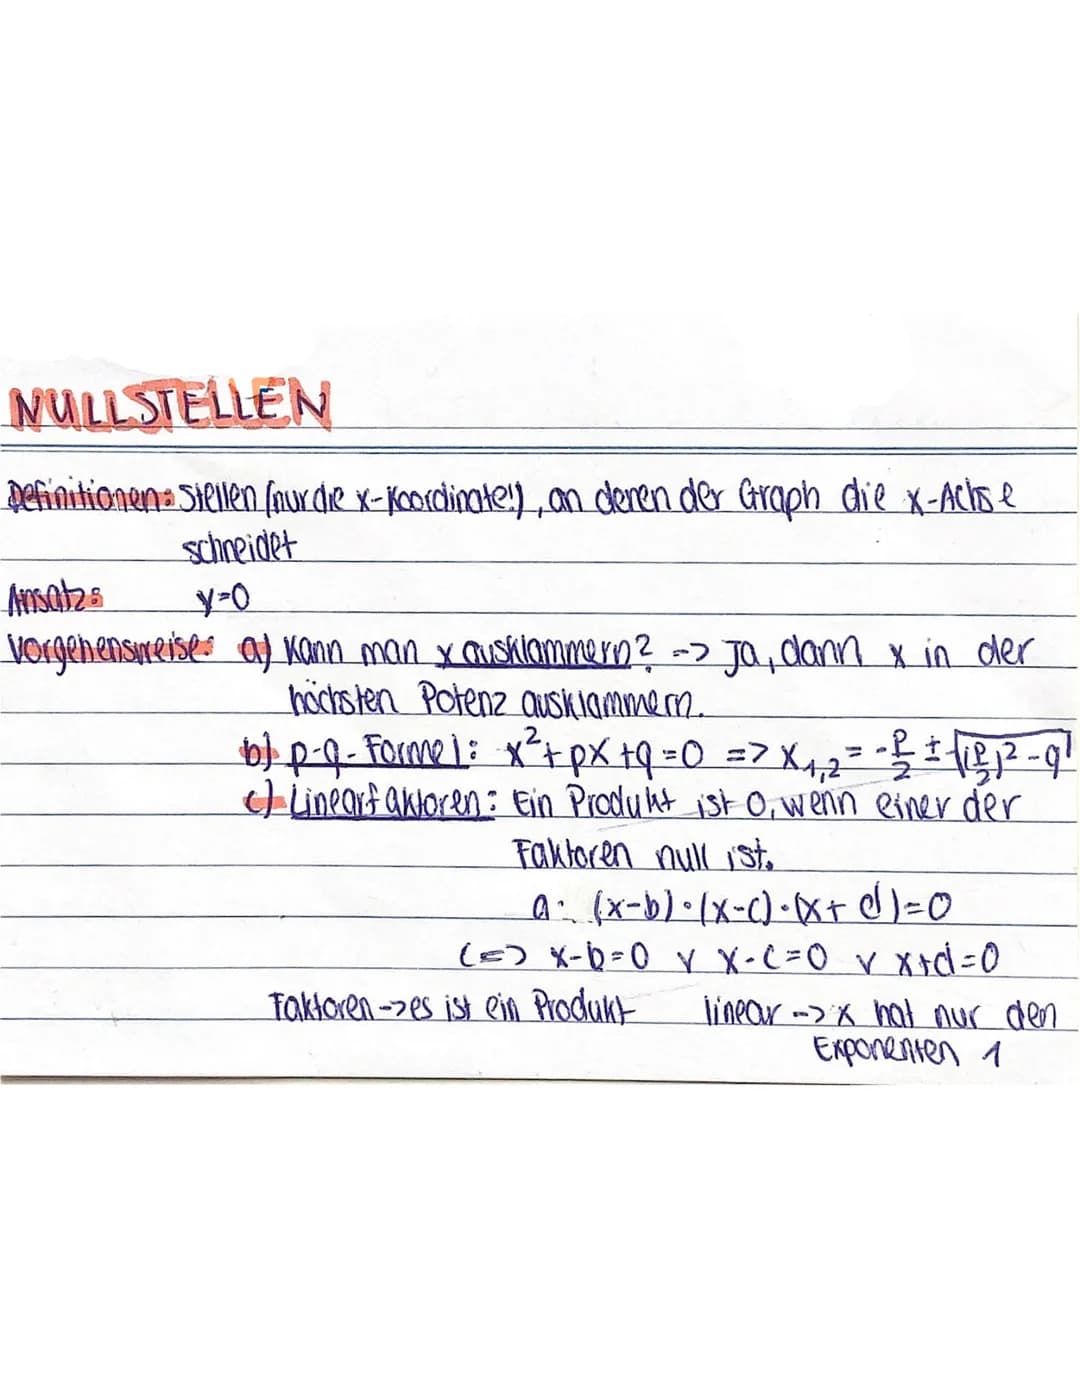 NULLSTELLEN
Definitionen: Stellen (nur die x-Koordinate!), an denen der Graph die x-Achse
schneidet
Ansatz: y=0
Vorgehensweise: a) Kann man x ausklammern? -> Ja, dann x in der
höchsten Potenz ausklammern.
b) p-q-Formel: x²+px+q=0 => x₁,₂ = -p/2 ± √((p/2)²-q)
c) Linearfaktoren: Ein Produkt ist 0, wenn einer der
Faktoren null ist.
a· (x-b)·(x-c)·(x+d)=0
<=> x-b=0 v x-c=0 v x+d=0
Faktoren -> es ist ein Produkt linear -> x hat nur den
Exponenten 1